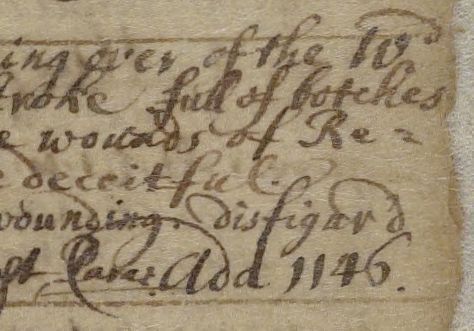 ing over of the Wd
stroke full of botches
e wounds of Re=
e deceitful.
wounding. disfigur'd
pt Par: Add 1146.